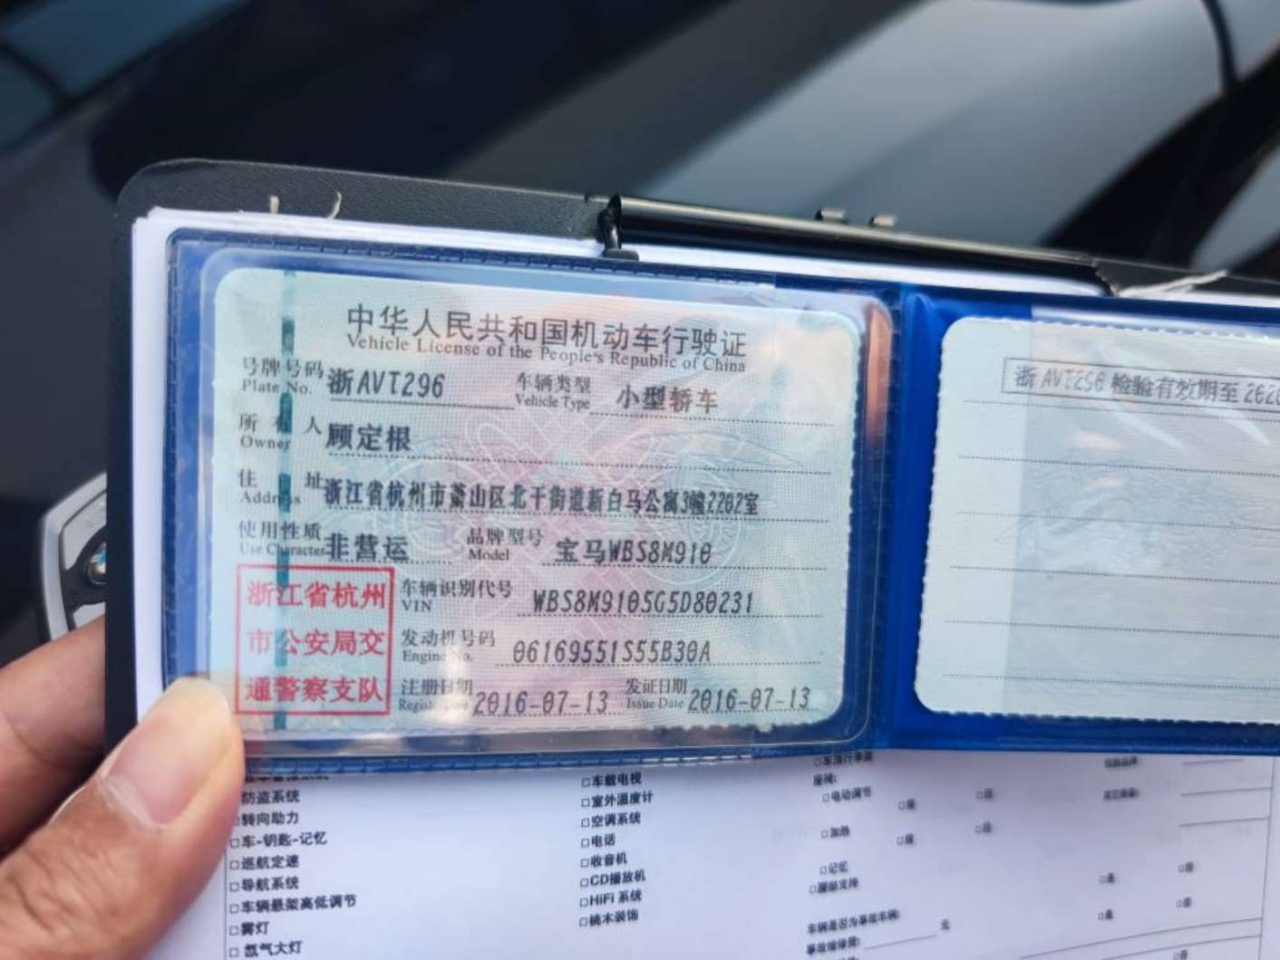 中华人民共和国机动车行驶证
Vehicle License of the People's Republic of China
号牌号码 浙AVT296 车辆类型 小型轿车
Plate No. Vehicle Type
所有人 顾定根
Owner
住址 浙江省杭州市萧山区北干街道新白马公寓3幢2202室
Address
使用性质 非营运 品牌型号 宝马WBS8M910
Use Character Model
浙江省杭州
市公安局交
通警察支队
车辆识别代号 WBS8M9105G5D80231
VIN
发动机号码 06169551S55B30A
Engine No.
注册日期 2016-07-13 发证日期 2016-07-13
Issue Date
检验有效期至
防盗系统
□转向助力
□车-钥匙-记忆
□巡航定速
□导航系统
□车辆悬架高低调节
□雾灯
□氙气大灯
□车载电视
□室外温度计
□空调系统
□电话
□收音机
□CD播放机
□HiFi 系统
□桃木装饰
座椅:
□电动调节
□加热
□记忆
□腰部支持
车辆是否为事故车辆:
元